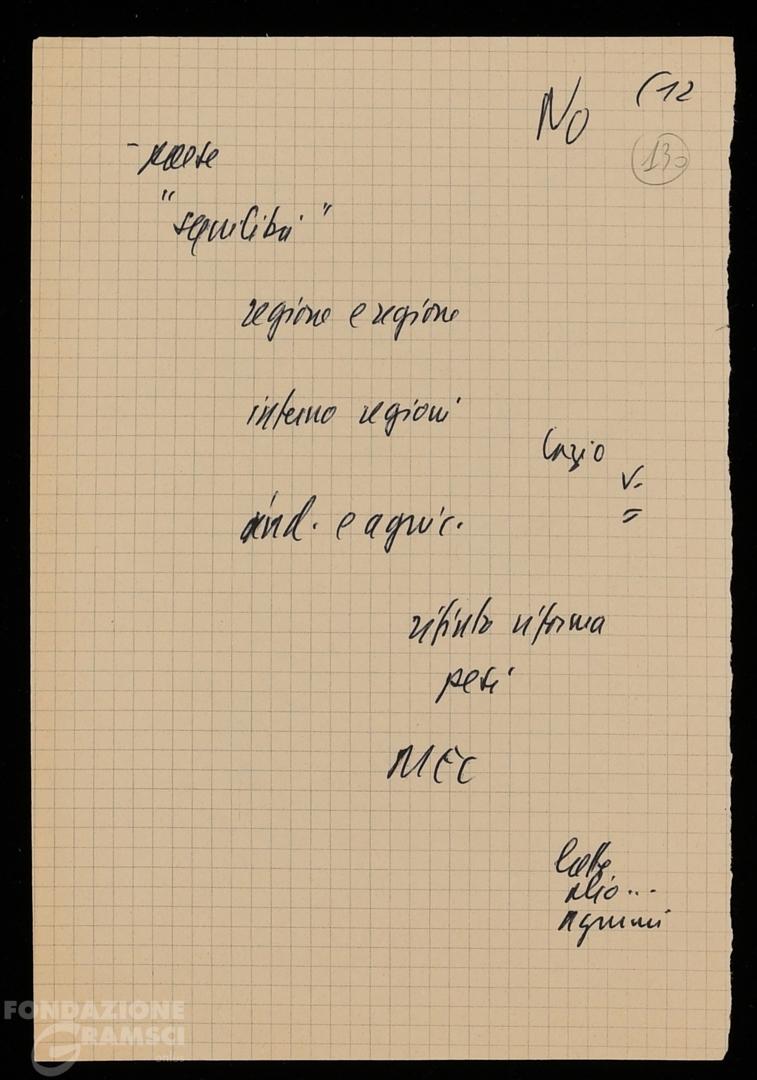 No (12
130
- paese
"squilibri"
regione e regione
interno regioni
Lazio
V.
=
ind. e agric.
rifiuto riforma
pesi
MEC
latte
olio...
agrumi
FONDAZIONE
GRAMSCI
onlus